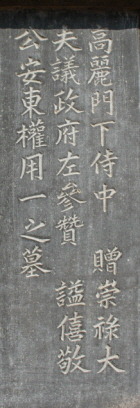 高麗門下侍中 贈崇祿大
夫議政府左參贊 諡僖敬
公安東權用一之墓